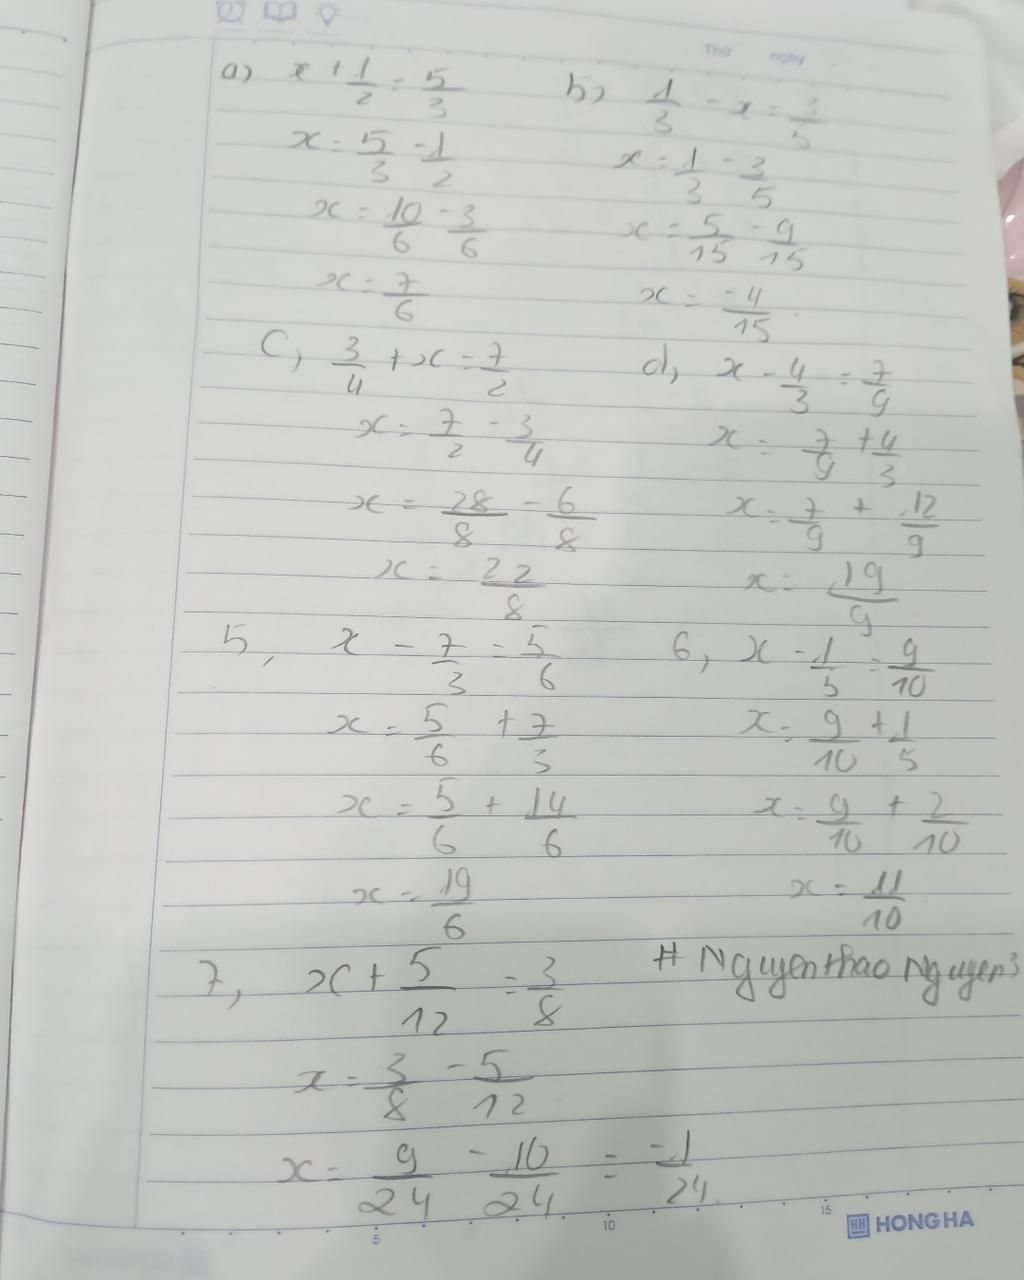 Thứ ngày
a) x + 1/2 = 5/3
x = 5/3 - 1/2
x = 10/6 - 3/6
x = 7/6
b) 1/3 - x = 3/5
x = 1/3 - 3/5
x = 5/15 - 9/15
x = -4/15
C, 3/4 + x = 7/2
x = 7/2 - 3/4
x = 28/8 - 6/8
x = 22/8
d, x - 4/3 = 7/9
x = 7/9 + 4/3
x = 7/9 + 12/9
x = 19/9
5, x - 7/3 = 5/6
x = 5/6 + 7/3
x = 5/6 + 14/6
x = 19/6
6, x - 1/5 = 9/10
x = 9/10 + 1/5
x = 9/10 + 2/10
x = 11/10
7, x + 5/12 = 3/8
x = 3/8 - 5/12
x = 9/24 - 10/24 = -1/24
# Nguyenthao Nguyen3
5 10 15
HH HONG HA